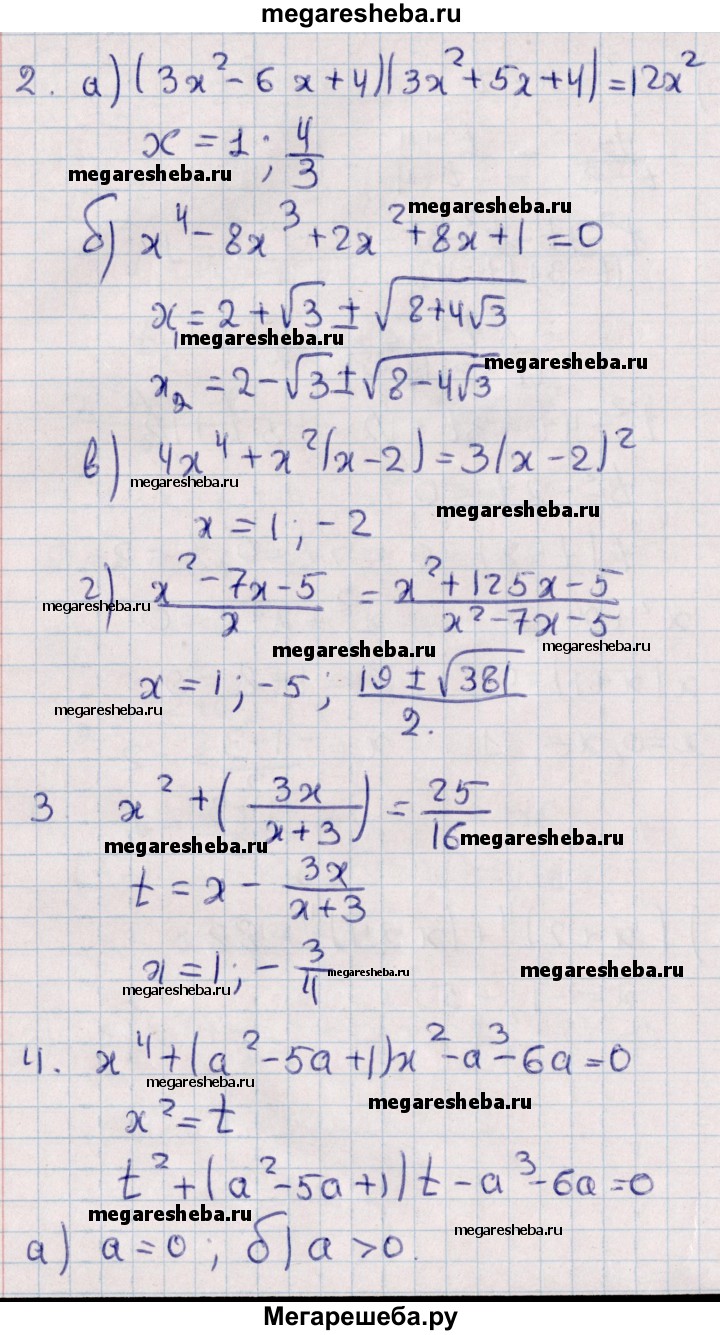 megaresheba.ru
2. а) (3x²-6x+4)(3x²+5x+4)=12x²
x=1; 4/3
megaresheba.ru
megaresheba.ru
б) x⁴-8x³+2x²+8x+1=0
x₁=2+√3±√(8+4√3)
megaresheba.ru
megaresheba.ru
x₂=2-√3±√(8-4√3)
в) 4x⁴+x²(x-2)=3(x-2)²
megaresheba.ru
megaresheba.ru
x=1; -2
г) (x²-7x-5)/x = (x²+125x-5)/(x²-7x-5)
megaresheba.ru
megaresheba.ru
megaresheba.ru
x=1; -5; (19±√381)/2.
megaresheba.ru
3 x²+(3x/(x+3))=25/16
megaresheba.ru
megaresheba.ru
t=x-3x/(x+3)
x=1; -3/4
megaresheba.ru
megaresheba.ru
megaresheba.ru
4. x⁴+(a²-5a+1)x²-a³-6a=0
megaresheba.ru
megaresheba.ru
x²=t
t²+(a²-5a+1)t-a³-6a=0
megaresheba.ru
megaresheba.ru
а) a=0; б) a>0.
Мегарешеба.ру